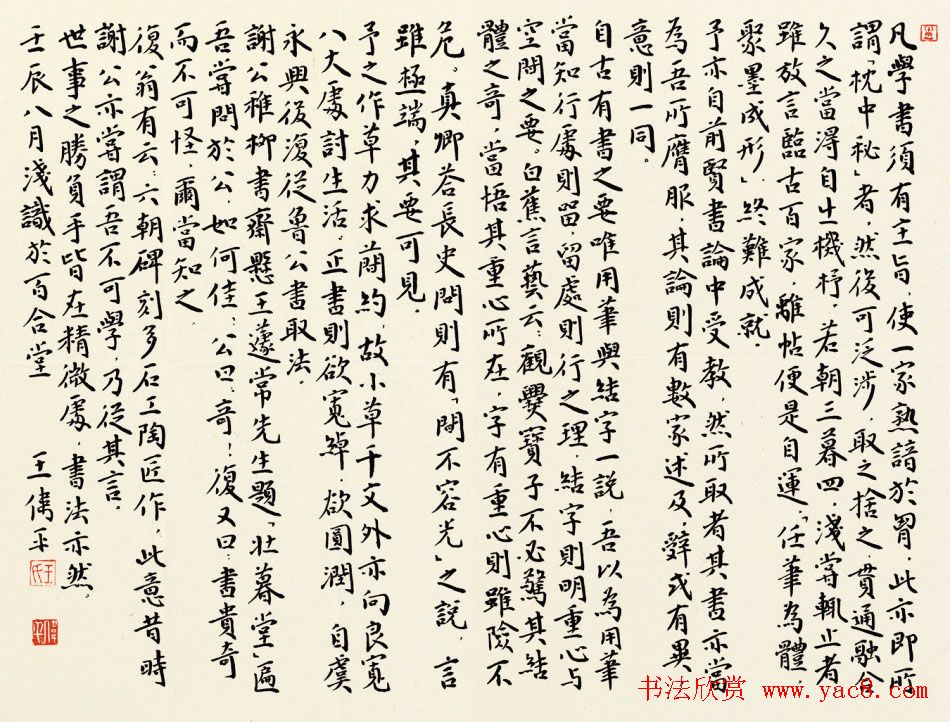 凡學書須有主旨，使一家熟諳於胸，此亦即所
謂「枕中秘」者，然後可泛涉，取之捨之，貫通融合，
久之當得自出機杼，若朝三暮四，淺嘗輒止者，
雖放言臨古百家，離帖便是自運，「任筆為體，
聚墨成形」，終難成就。
予亦自前賢書論中受教，然所取者其書亦當
為吾所膺服，其論則有數家述及，辭或有異，
意則一同。
自古有書之要唯用筆與結字一說，吾以為用筆
當知行處則留，留處則行之理，結字則明重心與
空間之要，白蕉言藝云：觀爨寶子不必驚其結
體之奇，當悟其重心所在，字有重心則雖險不
危，真卿答長史問則有「間不容光」之說，言
雖極端，其要可見。
予之作草力求簡約，故小草千文外亦向良寬
八大處討生活，正書則欲寬綽，欲圓潤，自虞
永興後復從魯公書取法。
謝公稚柳書齋懸王蘧常先生題「壯暮堂」匾
吾嘗問於公，如何佳，公曰：奇，復又曰：書貴奇
而不可怪，爾當知之。
復翁有云：六朝碑刻多石工陶匠作，此意昔時
謝公亦嘗謂吾不可學，乃從其言。
世事之勝負手皆在精微處，書法亦然。
壬辰八月淺識於百合堂 王偉平
书法欣赏 www.yac8.com